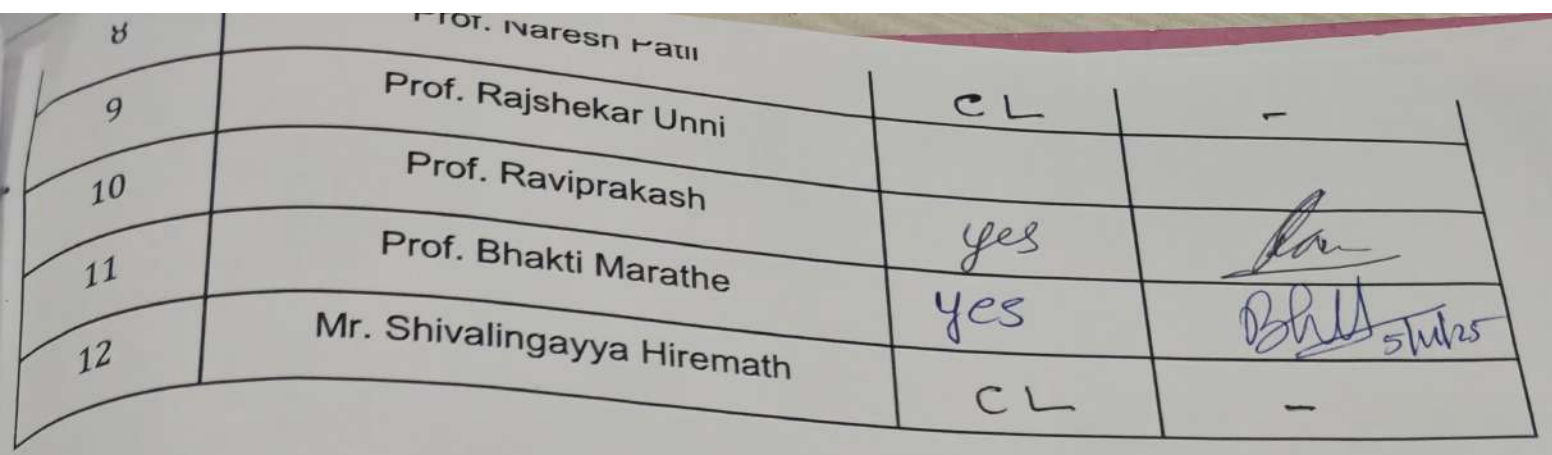 8 Prof. Naresh Patil CL -
9 Prof. Rajshekar Unni
10 Prof. Raviprakash yes
11 Prof. Bhakti Marathe yes 5/11/25
12 Mr. Shivalingayya Hiremath CL -